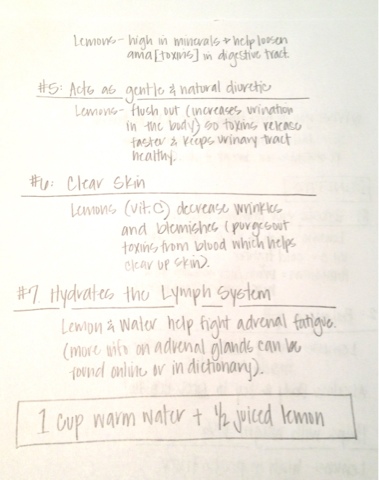 Lemons - high in minerals & help loosen
ama [toxins] in digestive tract
#5: Acts as gentle & natural diuretic
Lemons - flush out (increases urination
in the body) so toxins release
faster & keeps urinary tract
healthy.
#6: Clear Skin
Lemons (vit. C) decrease wrinkles
and blemishes (purges out
toxins from blood which helps
clear up skin).
#7 Hydrates the Lymph System
Lemon & Water help fight adrenal fatigue.
(more info on adrenal glands can be
found online or in dictionary).
1 cup warm water + ½ juiced lemon